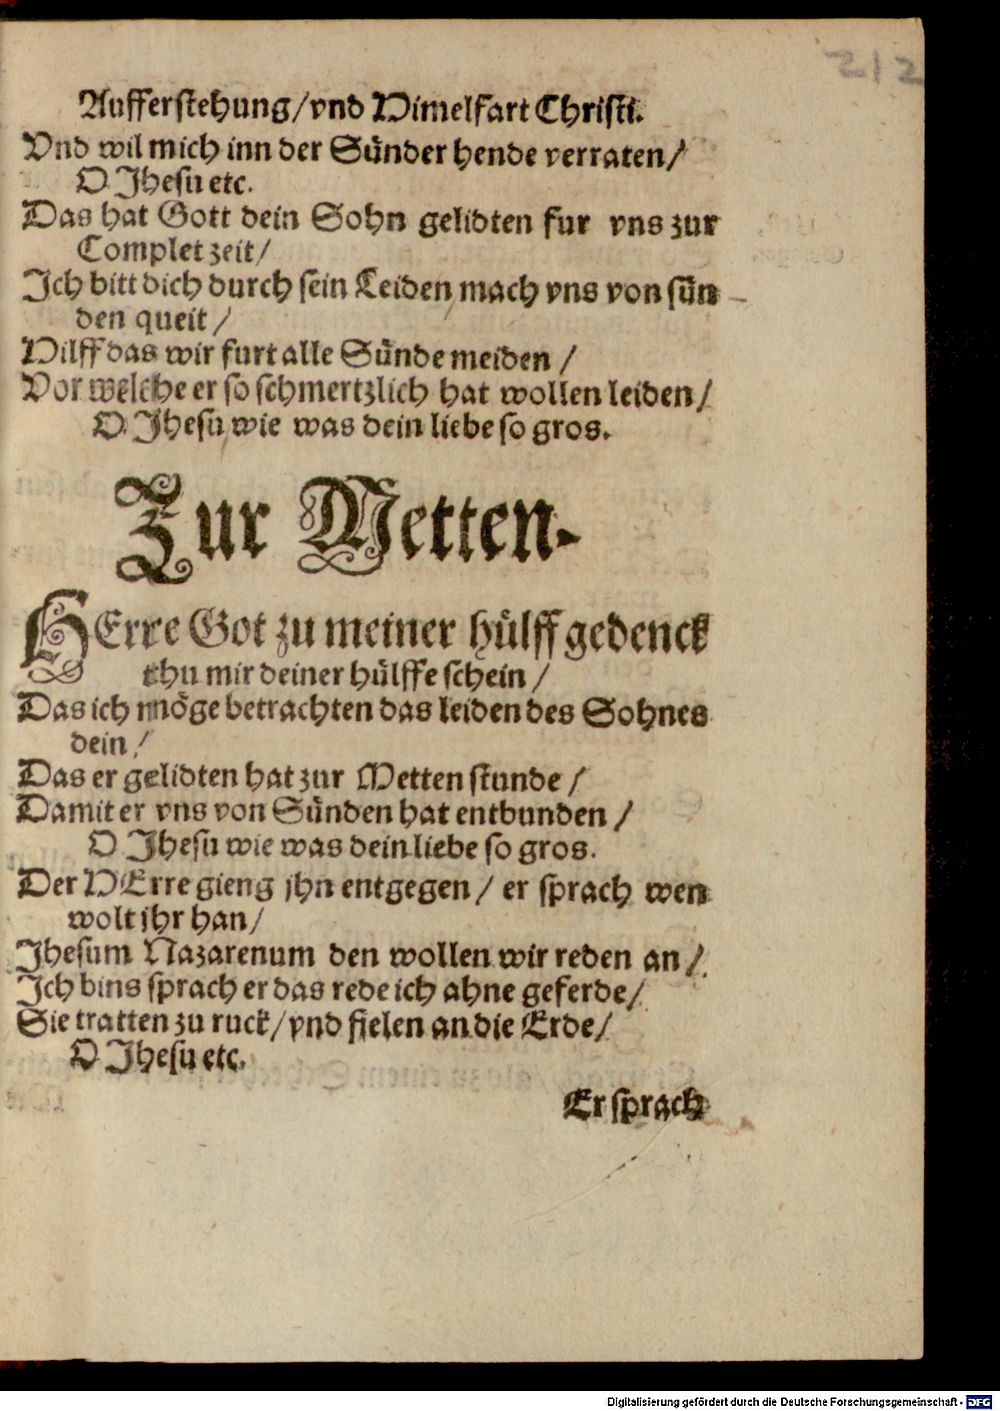 212
Aufferstehung/vnd Himelfart Christi.
Vnd wil mich inn der Sünder hende verraten/
O Jhesu etc.
Das hat Gott dein Sohn gelidten fur vns zur
Complet zeit/
Ich bitt dich durch sein Leiden mach vns von sün
den queit/
Hilff das wir furt alle Sünde meiden/
Vor welche er so schmertzlich hat wollen leiden/
O Jhesu wie was dein liebe so gros.
Zur Metten.
HErre Got zu meiner hülff gedenck
thu mir deiner hülffe schein/
Das ich möge betrachten das leiden des Sohnes
dein/
Das er gelidten hat zur Metten stunde/
Damit er vns von Sünden hat entbunden/
O Jhesu wie was dein liebe so gros.
Der HErre gieng jhn entgegen/ er sprach wen
wolt jhr han/
Jhesum Nazarenum den wollen wir reden an/
Ich bins sprach er das rede ich ahne geferde/
Sie tratten zu ruck/vnd fielen an die Erde/
O Jhesu etc.
Er sprach
Digitalisierung gefördert durch die Deutsche Forschungsgemeinschaft - DFG